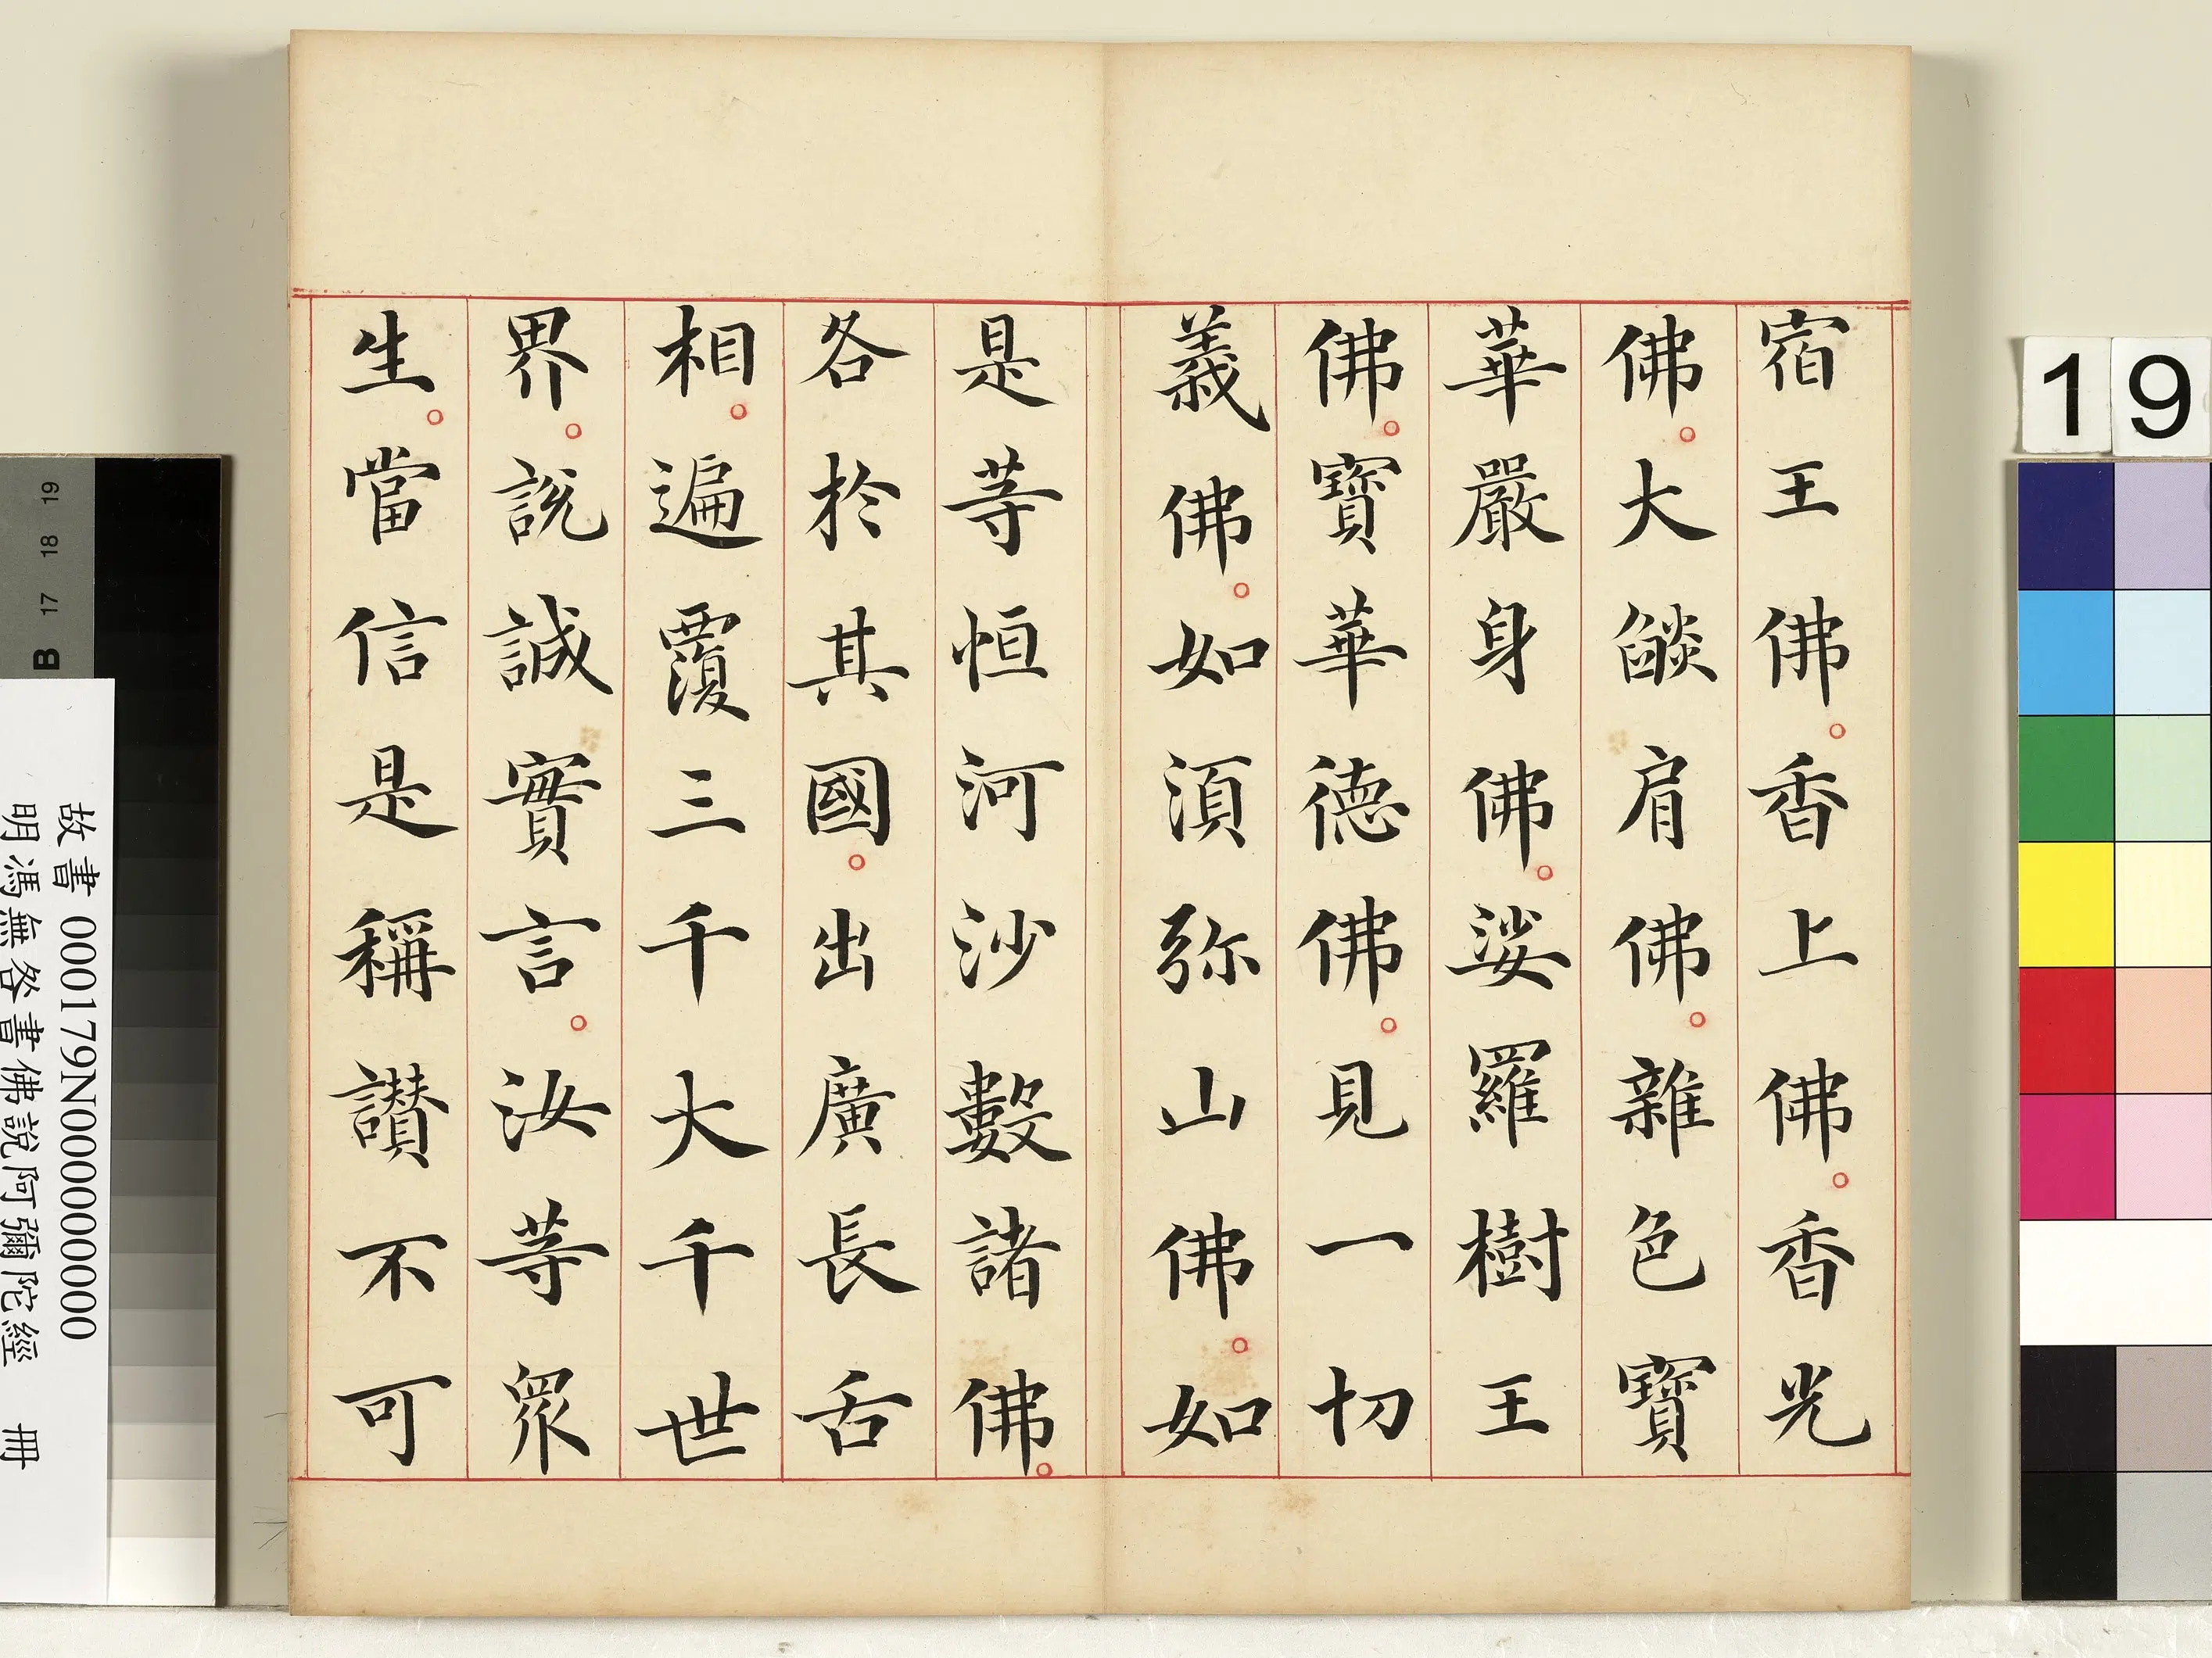 宿王佛。香上佛。香光
佛。大燄肩佛。雜色寶
華嚴身佛。娑羅樹王
佛。寶華德佛。見一切
義佛。如須弥山佛。如
是等恒河沙數諸佛。
各於其國。出廣長舌
相。遍覆三千大千世
界。說誠實言。汝等眾
生。當信是稱讃不可
19
故書 000179N000000000
明馮無咎書佛說阿彌陀經 冊
B 17 18 19